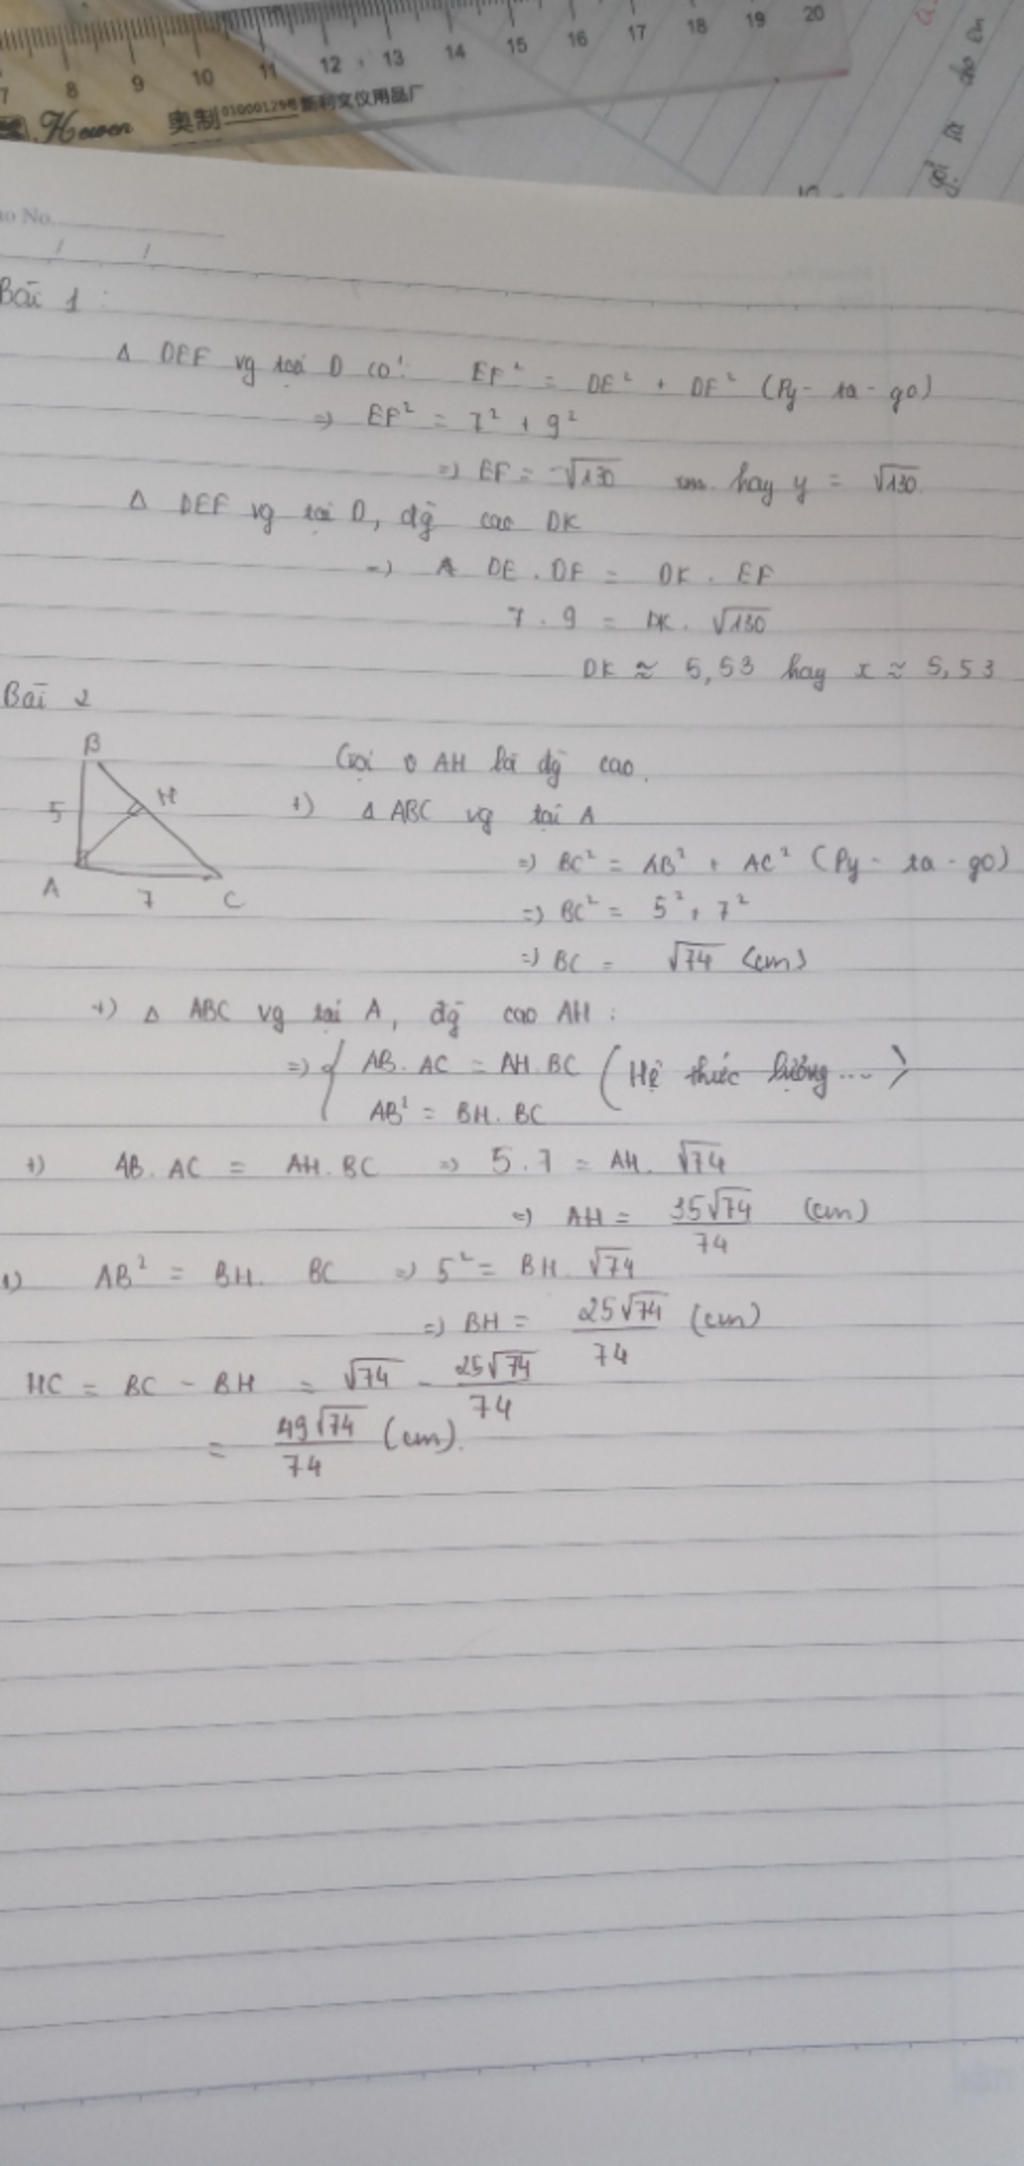 7 8 9 10 11 12 13 14 15 16 17 18 19 20
Hewen 奥制 01000129号 新利文仪用品厂
cho Em
gọi là
5
No.
/ /
Bài 1 :
Δ DEF vg tại D có: EF² = DE² + DF² (Py-ta-go)
=> EF² = 7² + 9²
=> EF = √130 cm hay y = √130
Δ DEF vg tại D, đg cao DK
=> DE . DF = DK . EF
7 . 9 = DK . √130
DK ≈ 5,53 hay x ≈ 5,53
Bài 2
B
Gọi AH là đg cao.
5 H
+) Δ ABC vg tại A
=> BC² = AB² + AC² (Py-ta-go)
A 7 C
=> BC² = 5² + 7²
=> BC = √74 (cm)
+) Δ ABC vg tại A, đg cao AH :
=> { AB . AC = AH . BC (Hệ thức lượng ...)
AB² = BH . BC
+) AB . AC = AH . BC => 5 . 7 = AH . √74
=> AH = 35√74/74 (cm)
+) AB² = BH . BC => 5² = BH . √74
=> BH = 25√74/74 (cm)
HC = BC - BH = √74 - 25√74/74
= 49√74/74 (cm).